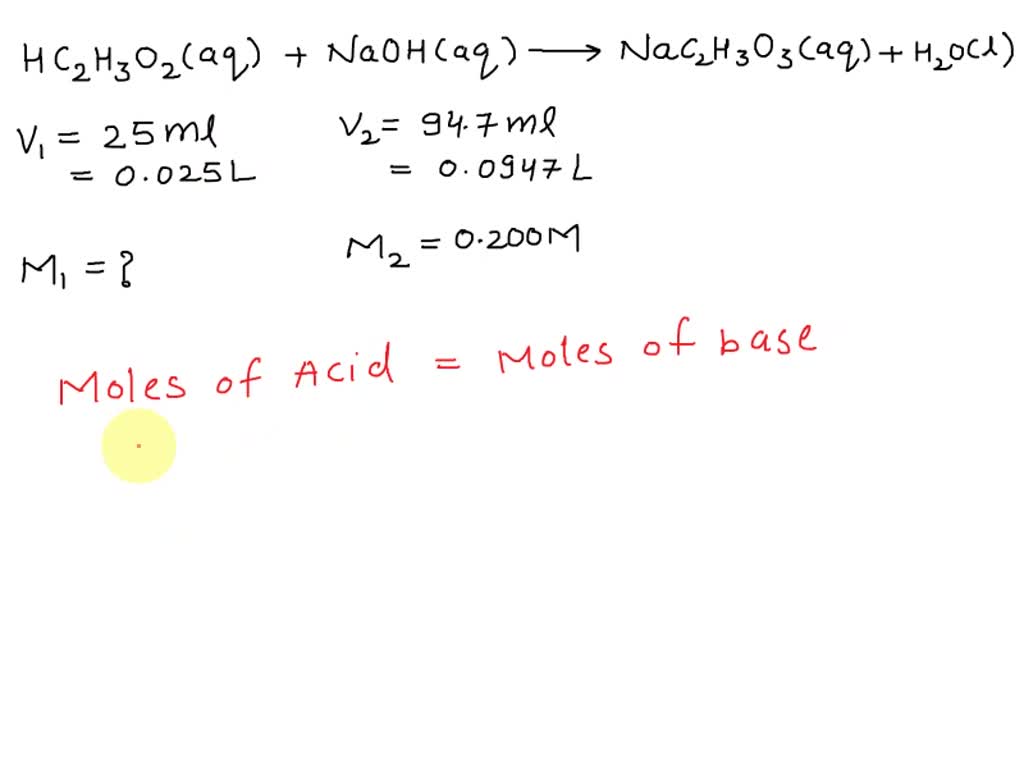 HC₂H₃O₂(aq) + NaOH(aq) ⟶ NaC₂H₃O₃(aq) + H₂O(l)
V₁ = 25 ml
= 0.025 L
V₂ = 94.7 ml
= 0.0947 L
M₁ = ?
M₂ = 0.200 M
Moles of Acid = Moles of base